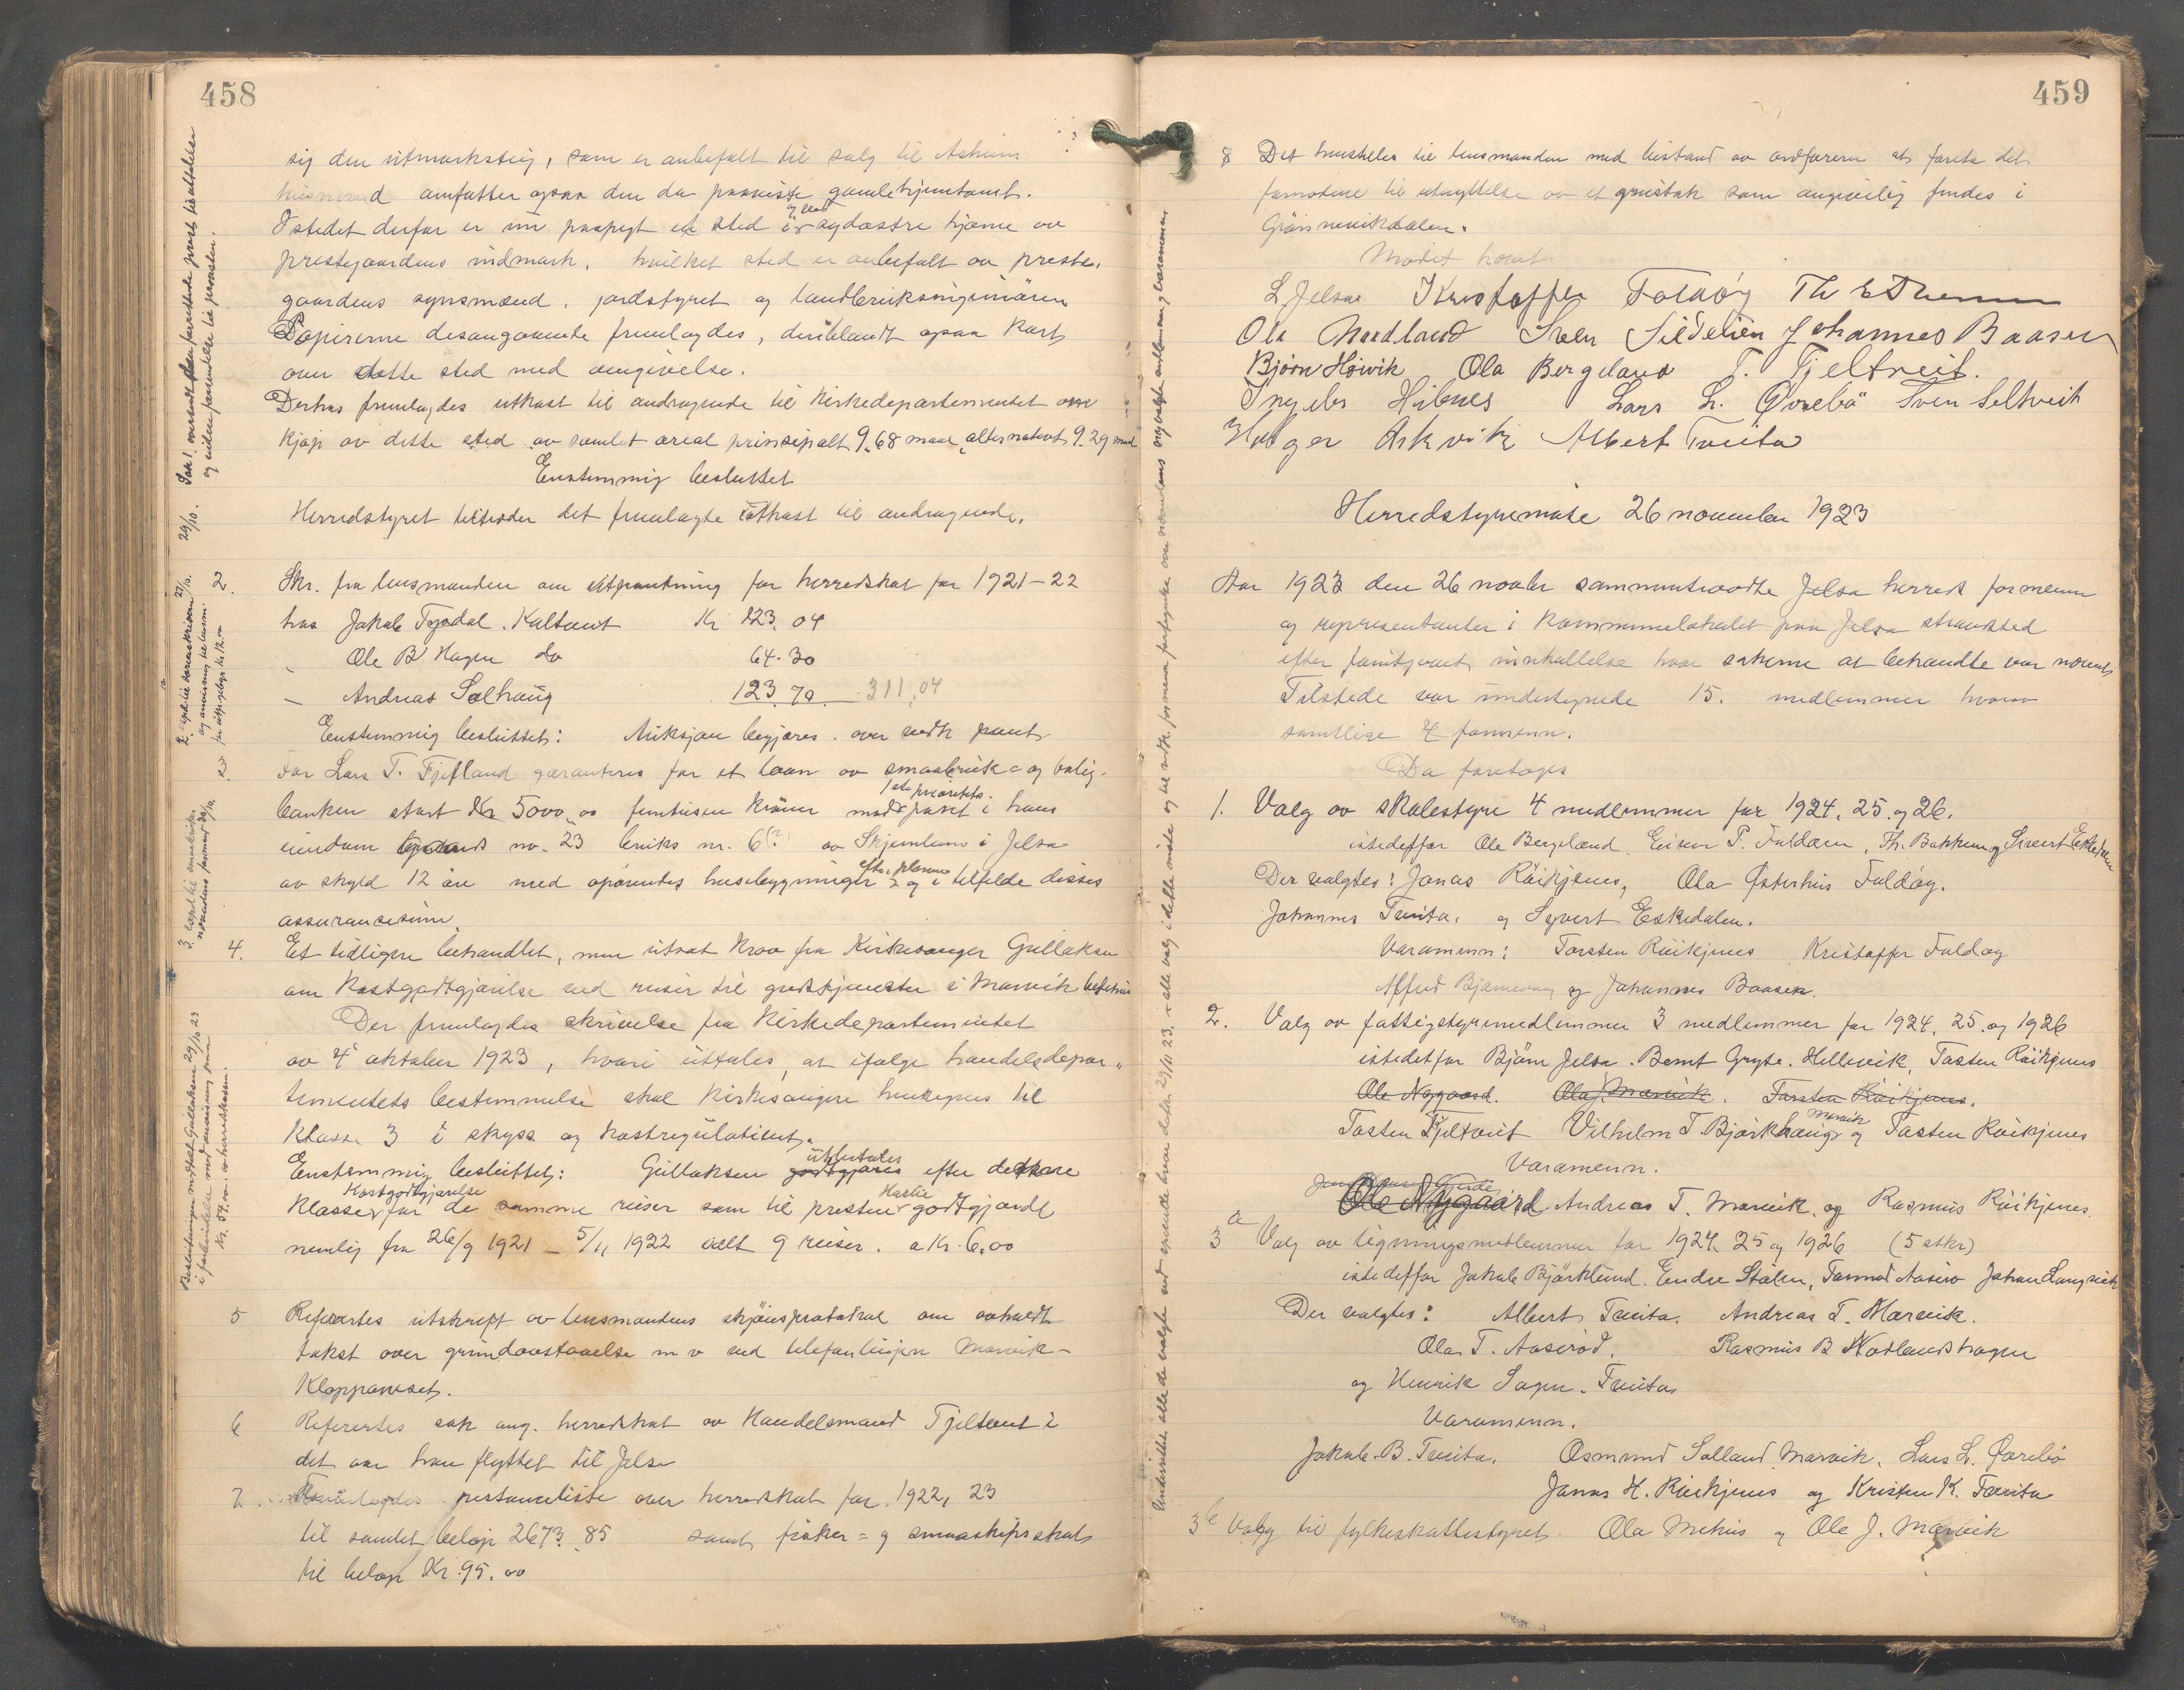 458
sig den utmarksteig, som er anbefalt til salg til Askim
husmænd omfatter ogsaa den da paaviste gamle hjemtomt.
I stedet derfor er nu paapegt et sted i sydøstre hjørne av
prestegaardens indmark, hvilket sted er anbefalt av preste-
gaardens synsmænd, jordstyret og landbruksingeniøren
Papirerne desangaaende fremlagdes, deriblandt ogsaa kart
over dette sted med angivelse.
Derhos fremlagdes utkast til andragende til Kirkedepartementet om
kjøp av dette sted av samlet areal prinsipalt 9.68 maal, alternativt 9.29 maal
Enstemmig besluttet
Herredstyret tiltræder det fremlagte utkast til andragende.
2. Skr. fra lensmanden om utpantning for herredskat for 1921-22
hos Jakob Tysdal. Kaltveit Kr 123.04
" Ole B Hagen do 64.30
- Andreas Solhaug 123.70 311,04
Enstemmig besluttet: Auksjon begjæres over vedk pant
3. For Lars T. Fjetland garanteres for et laan av smaabruk= og bolig-
banken stort Kr 5000,00 femtusen kroner mot 1ste prioritets pant i hans
eiendom gaards no. 23 bruks nr. 6(?) av Skjemlem i Jelsa
av skyld 12 øre med opførendes husebygninger efter planene og i tilfelde disses
assuransesum
4. Et tidligere behandlet, men utsat krav fra Kirkesanger Gullaksen
om kostgodtgjørelse ved reiser til gudstjenester i Marvik bedehus
Der fremlagdes skrivelse fra Kirkedepartementet
av 4 oktober 1923, hvori uttales, at ifølge handelsdepar-
tementets bestemmelse skal kirkesangere henregnes til
klasse 3 i skyss og kostregulativet.
Enstemmig besluttet: Gullaksen utbetales efter denne
klasse kostgodtgjørelse for de samme reiser som til presten Haslie godtgjorde
nemlig fra 26/9 1921 - 5/11 1922 ialt 9 reiser. a Kr. 6,00
5 Refertes utskrift av lensmandens skjønsprotokol om avholdt
takst over grundavstaaelse m v ved telefonlinjen Marvik-
Kloppaneset.
6 Refertes sak ang. herredskat av Handelsmand Tjeltveit i
det aar han flyttet til Jelsa
7. Fremlagdes restanceliste over herredskat for 1922, 23
til samlet beløp 2673,85 samt fisker= og smaaskipsskat
til beløp Kr. 95.00
459
8 Det henstilles til lensmanden med bistand av ordføreren at foreta det
fornødne til utnyttelse av et grustak som angivelig findes i
Grønnevikdalen.
Møtet hævet
L Jelsa Kristoffer Foldøy
Ola Nordland Sven Lidelien Johannes Baasen
Bjørn Høivik Ola Bergeland T. Tjeltveit.
Ingebr Hibnes Lars L. Øvrebö Sven Seltveit
Holger Askvik Albert Tveita
Herredstyremøte 26 november 1923
Aar 1923 den 26 novbr sammentraadte Jelsa herred formenn
og representanter i kommunelokalet paa Jelsa strandsted
efter forutgaaet innkallelse hvor sakerne at behandle var nævnt
Tilstede var undertegnede 15. medlemmer hvorav
samtlige 4 formenn.
Da foretoges
1. Valg av skolestyre 4 medlemmer for 1924, 25 og 26.
istedetfor Ole Bergeland. Einar T. Foldøen, Th. Bakken og Sivert Eskedalen
Der valgtes: Jonas Röikjenes, Ola Østerhus Foldøy.
Johannes Tveita. og Syvert Eskedalen.
Varamenn: Torsten Röikjenes Kristoffer Foldøy
Alfred og Johannes Baasen.
2. Valg av fattigstyremedlemmer 3 medlemmer for 1924, 25 og 1926
istedetfor Björn Jelsa. Bernt Gryte. Hellevik, Tosten Röikjenes
Ole Nygaard. Ola Marvik. Torsten Röikjenes.
Tosten Tjeltveit Vilhelm T Björkhaug Marvik og Tosten Röikjenes
Varamenn.
Ole Nygaard Andreas T. Marvik. og Rasmus Röikjenes.
3a Valg av ligningsmedlemmer for 1924, 25 og 1926 (5 stkr)
istedetfor Jakob Björklund. Endre Stølen, Tormod Aaserø Johan Langvik
Der valgtes: Albert Tveita. Andreas T. Marvik.
Ola T. Aaserød. Rasmus B Nordlandshagen
og Henrik Sagen. Tveita
Varamenn.
Jakob B. Tveita. Osmund Solland Marvik. Lars L. Øvrebö
Jonas H. Röikjenes og Kristen K. Tveita
3b Valg til fylkeskattestyret. Ola Mehus og Ole J. Marvik